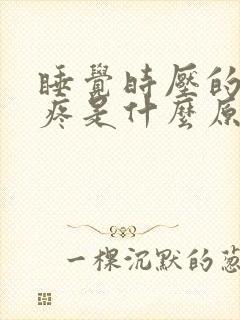 睡覺時壓的
疼是什麼原
一棵沉默的蔥